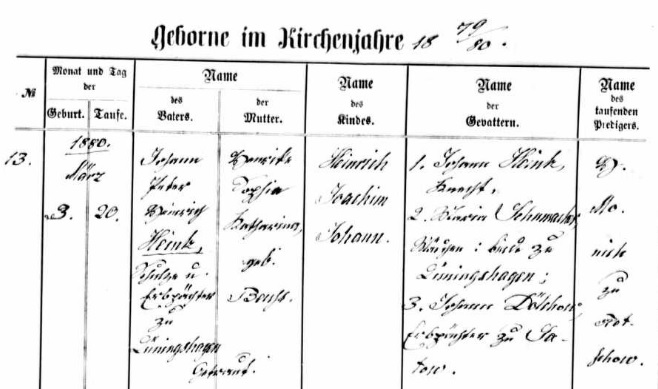 Geborne im Kirchenjahre 18 79/80.
№
Monat und Tag der
Geburt. Taufe.
Name
des Vaters.
der Mutter.
Name des Kindes.
Name der Gevattern.
Name des taufenden Predigers.
13.
1880.
März
3. 20.
Johann
Peter
Heinrich
Heink,
Schulze u.
Erbpächter
zu
Lüningshagen
Getraut.
Sophia
Katharina,
geb.
Heinrich
Joachim
Johann.
1. Johann Heink,
Knecht,
2. Maria Schumacher,
Mädchen : beide zu
Lüningshagen ;
3. Johann
Erbpächter zu Sa-
tow.
zu